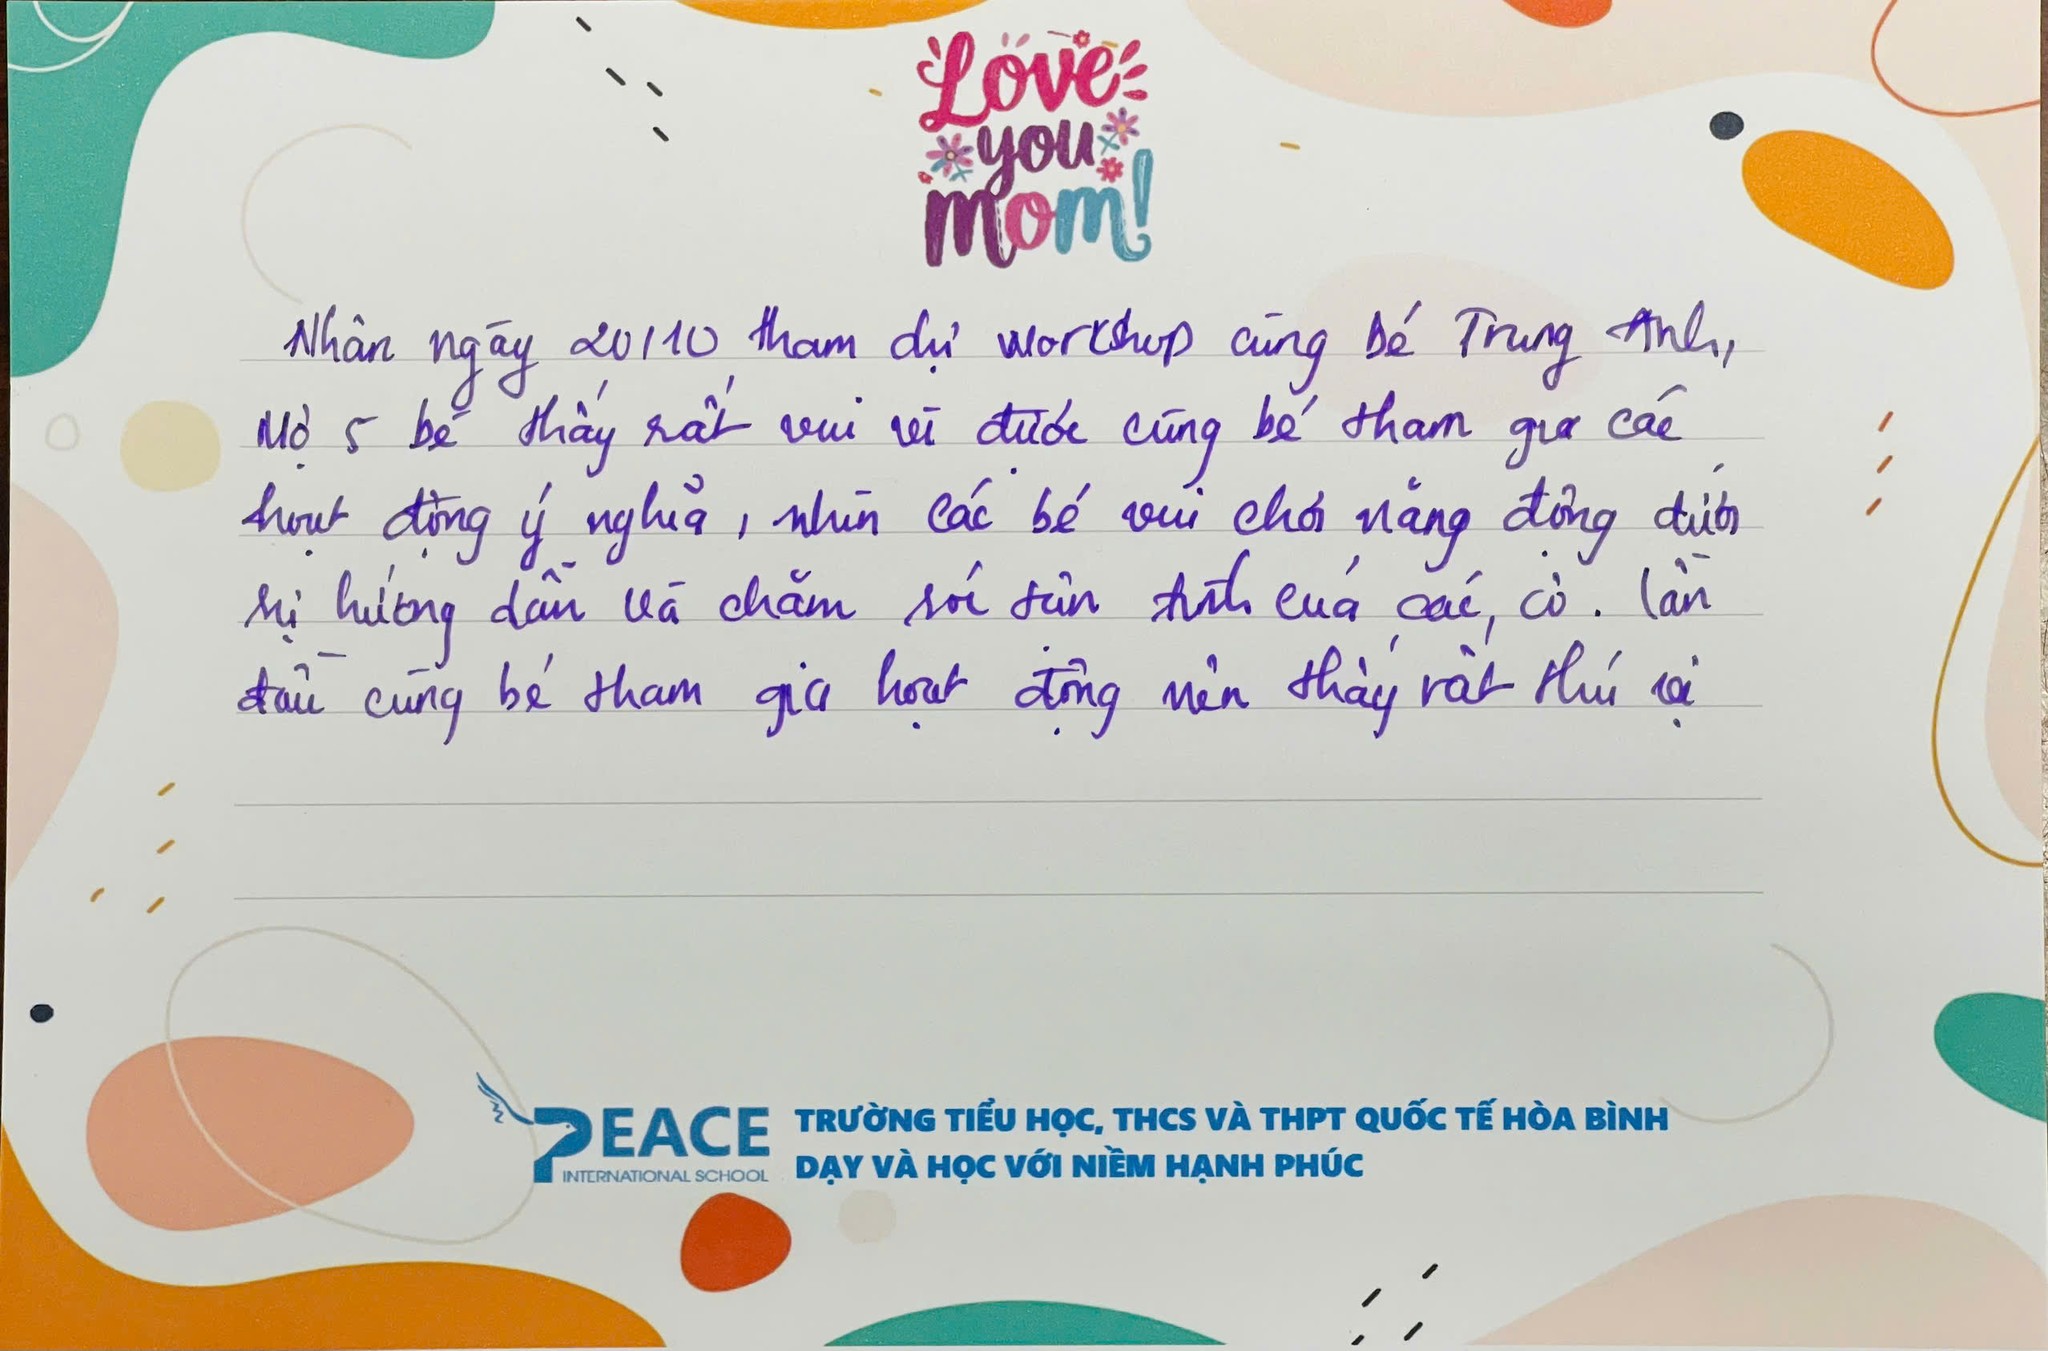 Love
you
mom!
Nhân ngày 20/10 tham dự workshop cùng bé Trung Anh,
Mợ 5 bé thấy rất vui vì được cùng bé tham gia các
hoạt động ý nghĩa, nhìn các bé vui chơi năng động dưới
sự hướng dẫn và chăm sóc tận tình của các cô. Lần
đầu cùng bé tham gia hoạt động nên thấy rất thú vị
PEACE
INTERNATIONAL SCHOOL
TRƯỜNG TIỂU HỌC, THCS VÀ THPT QUỐC TẾ HÒA BÌNH
DẠY VÀ HỌC VỚI NIỀM HẠNH PHÚC